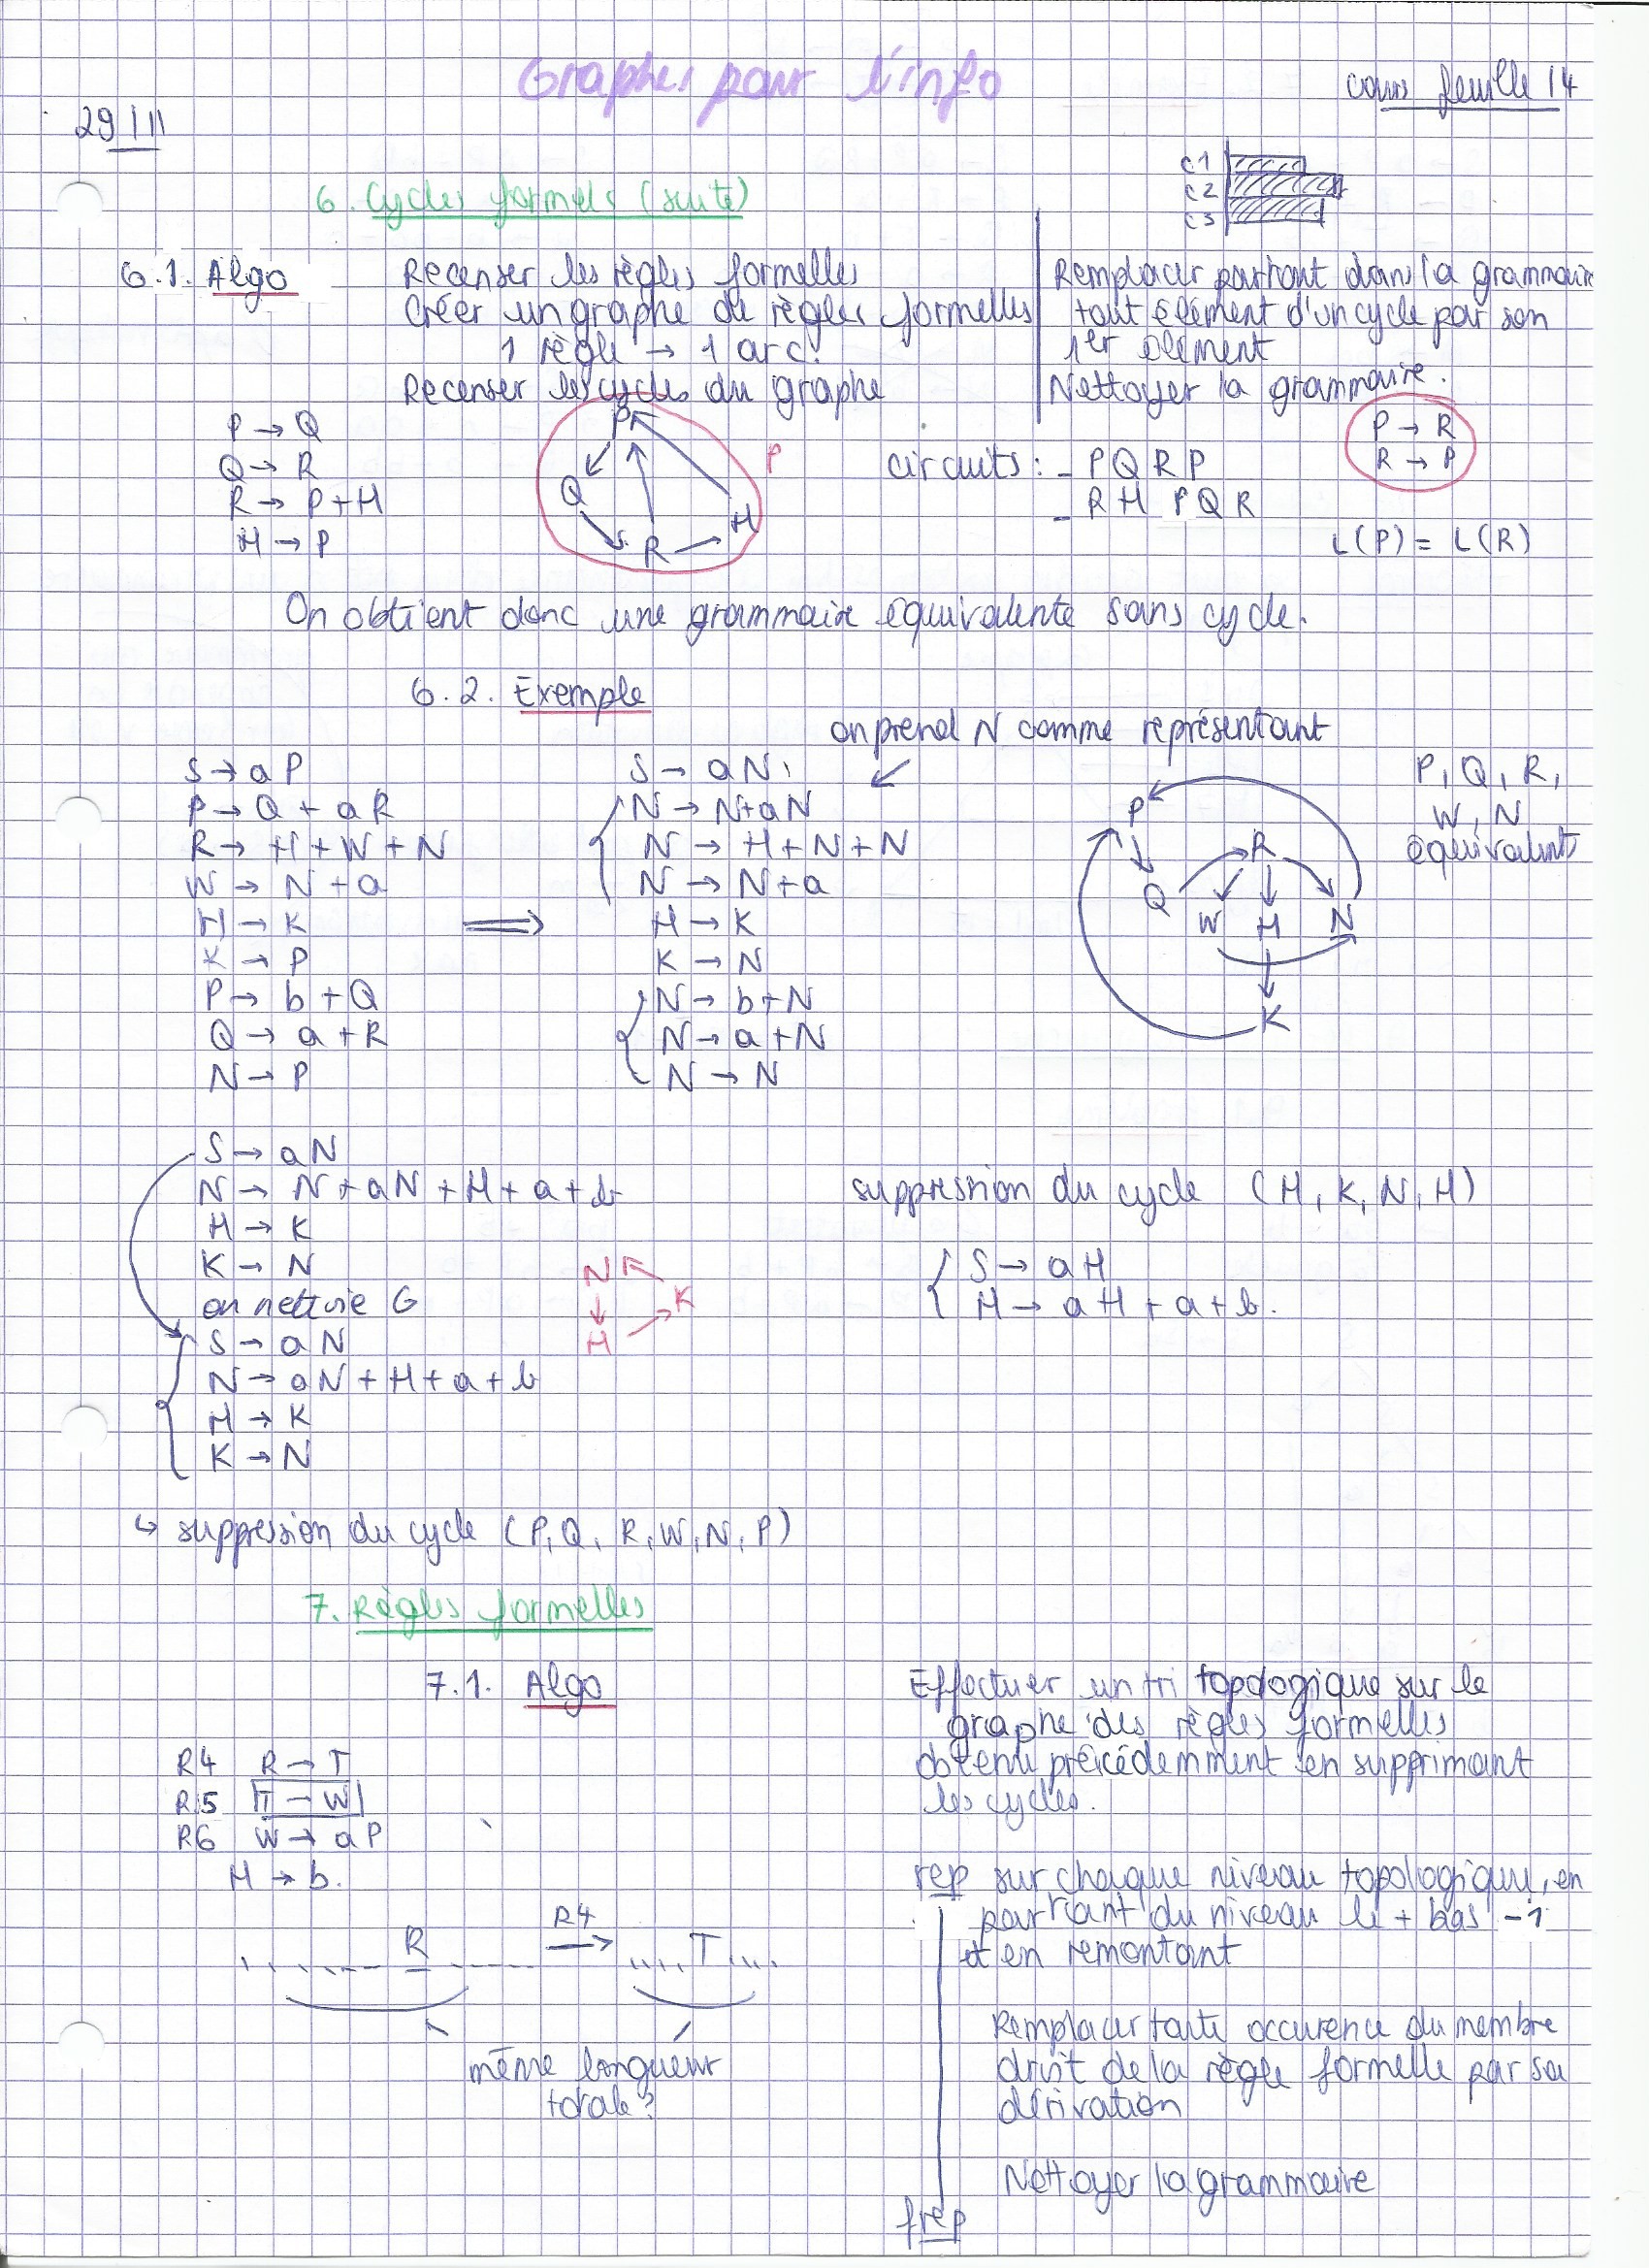 Graphes pour l'info
cours feuille 14
29/11
C1
C2
C3
6. Cycles formels (suite)
6.1. Algo
Recenser les règles formelles
Créer un graphe de règles formelles
1 règle → 1 arc.
Recenser les cycles du graphe
Remplacer partout dans la grammaire
tout élément d'un cycle par son
1er élément
Nettoyer la grammaire.
P → Q
Q → R
R → P + H
H → P
P
Q
R
H
P
circuits : - P Q R P
- R H P Q R
P → R
R → P
L(P) = L(R)
On obtient donc une grammaire équivalente sans cycle.
6.2. Exemple
on prend N comme représentant
S → aP
P → Q + aR
R → H + W + N
W → N + a
H → K
K → P
P → b + Q
Q → a + R
N → P
⟹
S → aN
N → N + aN
N → H + N + N
N → N + a
H → K
K → N
N → b + N
N → a + N
N → N
P
Q
R
W
H
N
K
P, Q, R,
W, N
équivalents
S → aN
N → N + aN + H + a + b
H → K
K → N
on nettoie G
S → aN
N → aN + H + a + b
H → K
K → N
N
K
H
suppression du cycle (H, K, N, H)
S → aH
H → aH + a + b.
↳ suppression du cycle (P, Q, R, W, N, P)
7. Règles formelles
7.1. Algo
R4 R → T
R5 T → W
R6 W → aP
H → b.
R
R4
→
.... T ....
même longueur
totale ?
Effectuer un tri topologique sur le
graphe des règles formelles
obtenu précédemment en supprimant
les cycles.
rep sur chaque niveau topologique, en
partant du niveau le + bas -1
et en remontant
Remplacer toute occurence du membre
droit de la règle formelle par sa
dérivation
Nettoyer la grammaire
frep